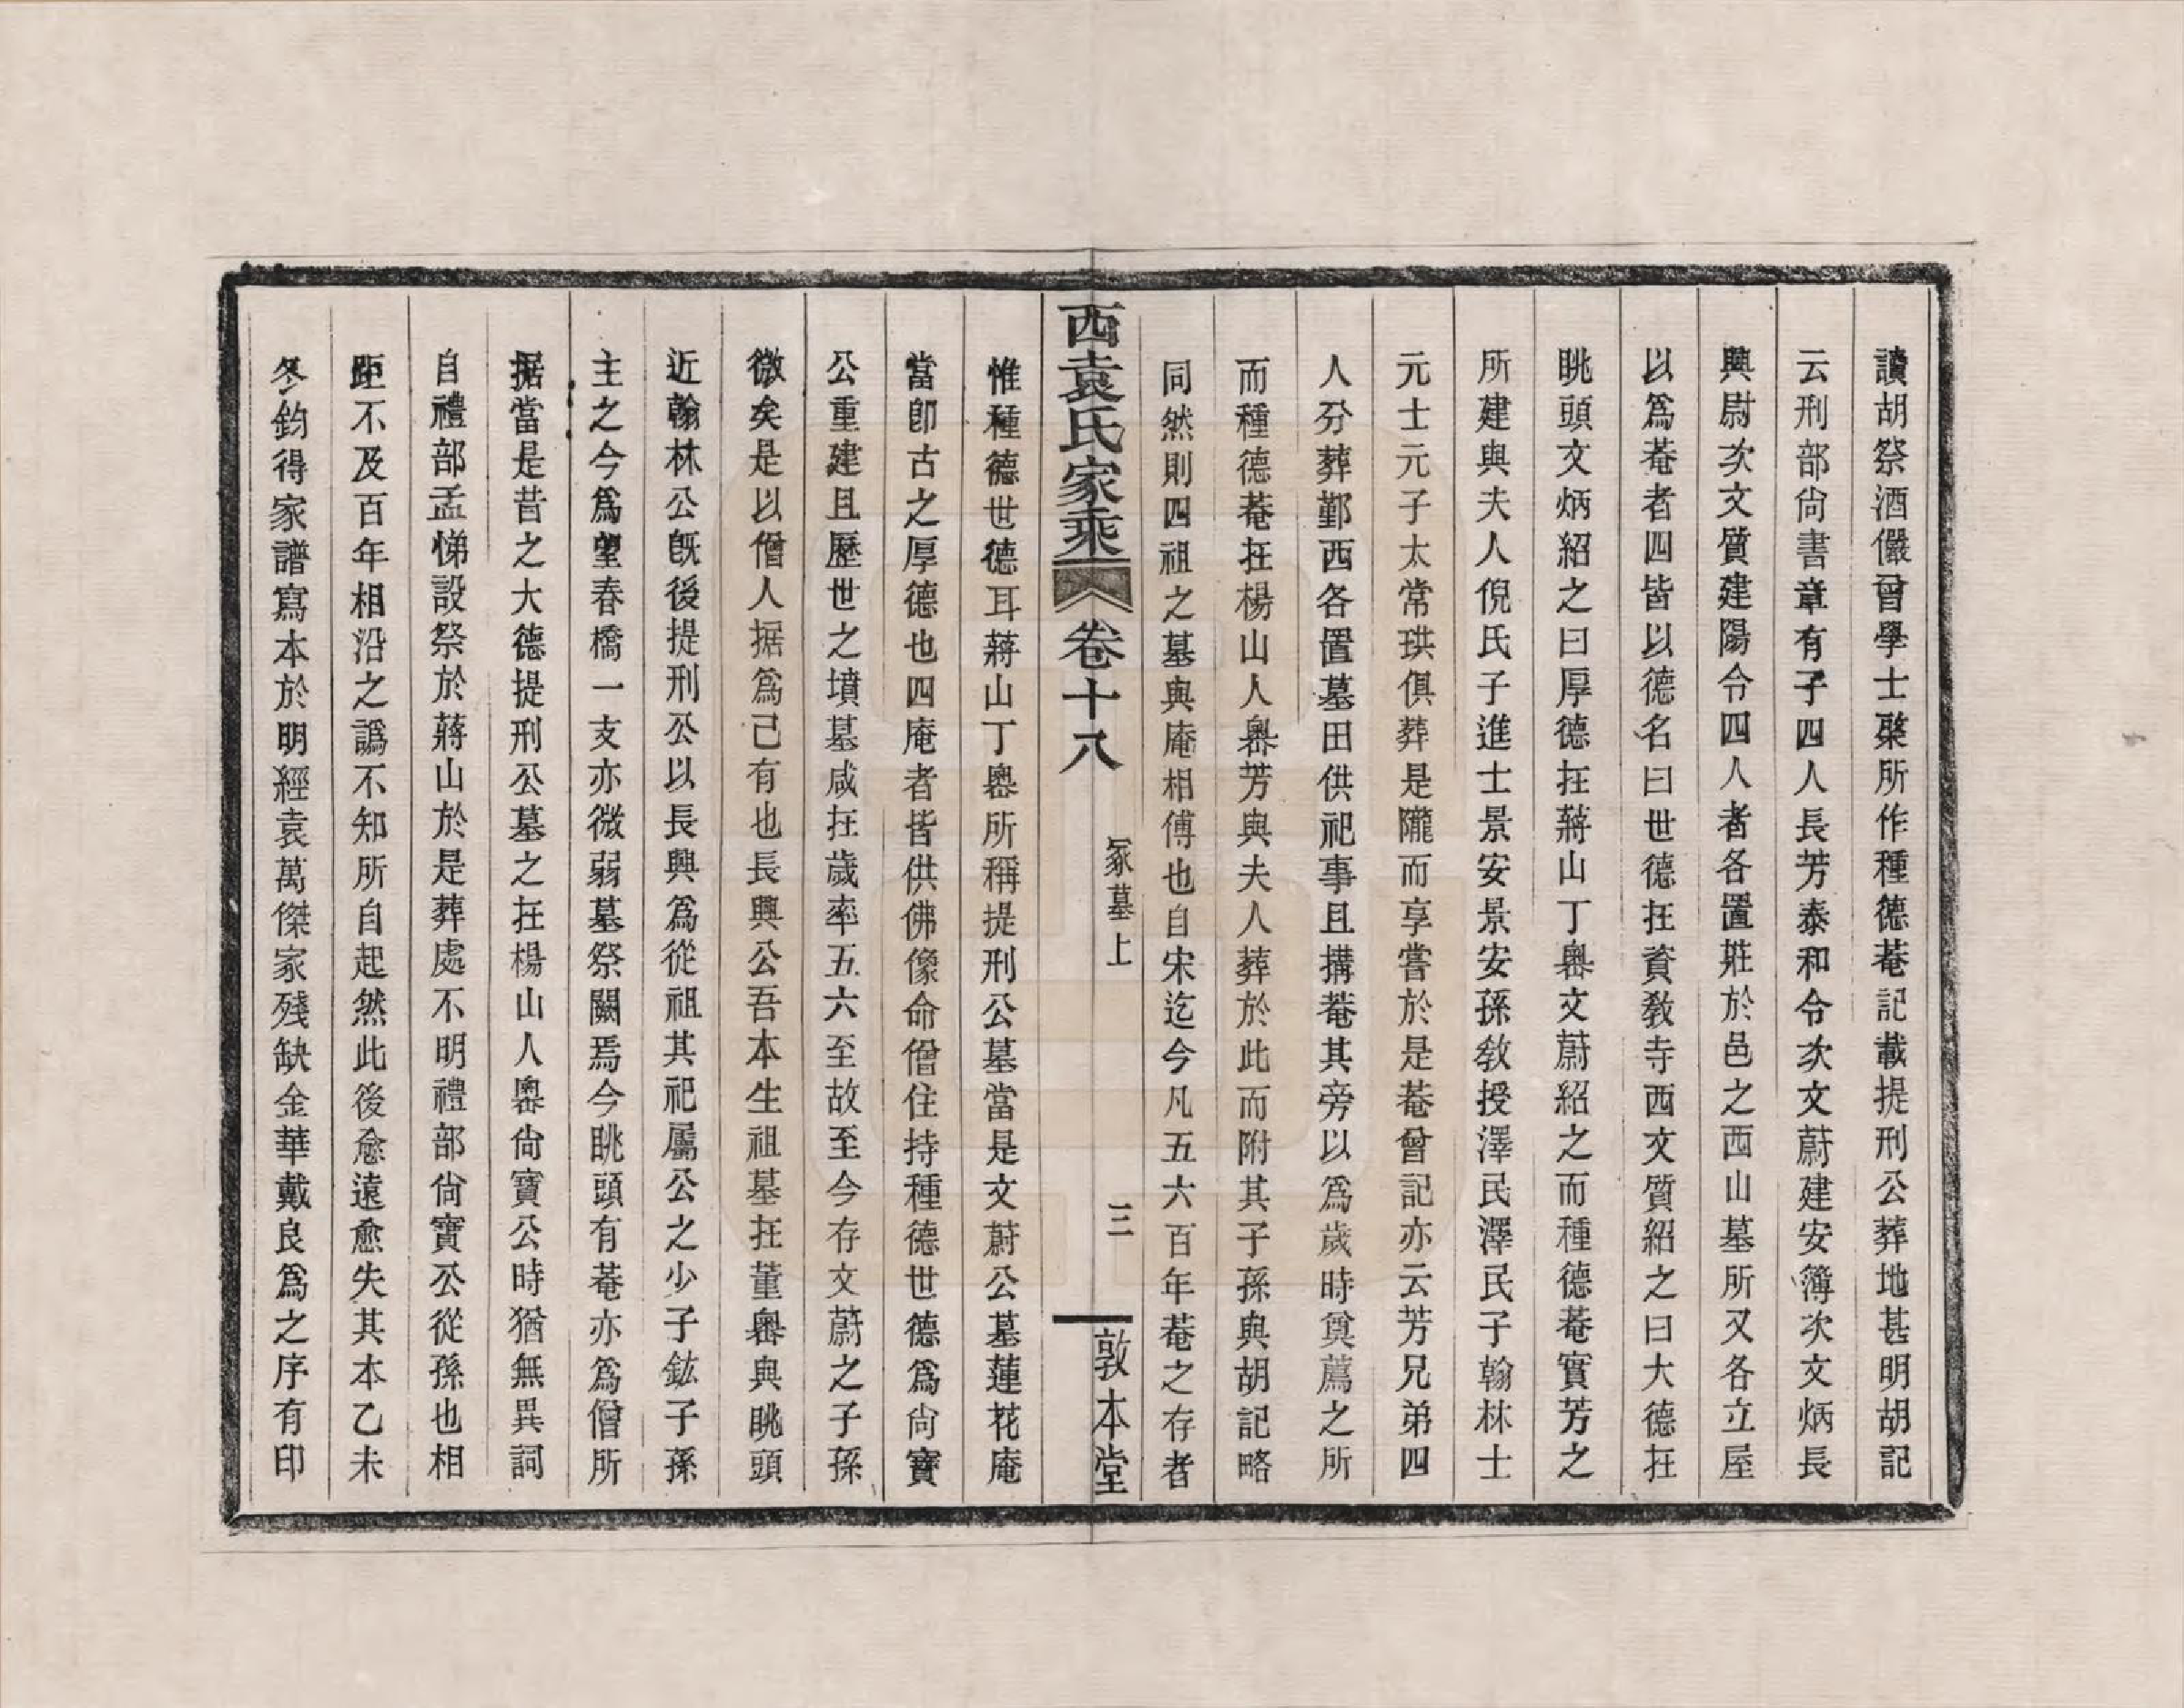 讀胡祭酒儼曾學士棨所作種德菴記載提刑公葬地甚明胡記
云刑部尙書章有子四人長芳泰和令次文蔚建安簿次文炳長
興尉次文質建陽令四人者各置莊於邑之西山墓所又各立屋
以爲菴者四皆以德名曰世德在資敎寺西文質紹之曰大德在
眺頭文炳紹之曰厚德在蔣山丁嶴文蔚紹之而種德菴實芳之
所建與夫人倪氏子進士景安景安孫敎授澤民澤民子翰林士
元士元子太常珙俱葬是隴而享嘗於是菴曾記亦云芳兄弟四
人分葬鄞西各置墓田供祀事且搆菴其旁以爲歲時奠薦之所
而種德菴在楊山人嶴芳與夫人葬於此而附其子孫與胡記略
同然則四祖之墓與庵相傅也自宋迄今凡五六百年菴之存者
西袁氏家乘 卷十八 冢墓上 三 敦本堂
惟種德世德耳蔣山丁嶴所稱提刑公墓當是文蔚公墓蓮花庵
當卽古之厚德也四庵者皆供佛像命僧住持種德世德爲尙寶
公重建且歷世之墳墓咸在歲率五六至故至今存文蔚之子孫
微矣是以僧人据爲己有也長興公吾本生祖墓在董嶴與眺頭
近翰林公旣後提刑公以長興爲從祖其祀屬公之少子鈜子孫
主之今爲望春橋一支亦微弱墓祭闕焉今眺頭有菴亦爲僧所
据當是昔之大德提刑公墓之在楊山人嶴尙寶公時猶無異詞
自禮部孟悌設祭於蔣山於是葬處不明禮部尙寶公從孫也相
距不及百年相沿之譌不知所自起然此後愈遠愈失其本乙未
冬鈞得家譜寫本於明經袁萬傑家殘缺金華戴良爲之序有印